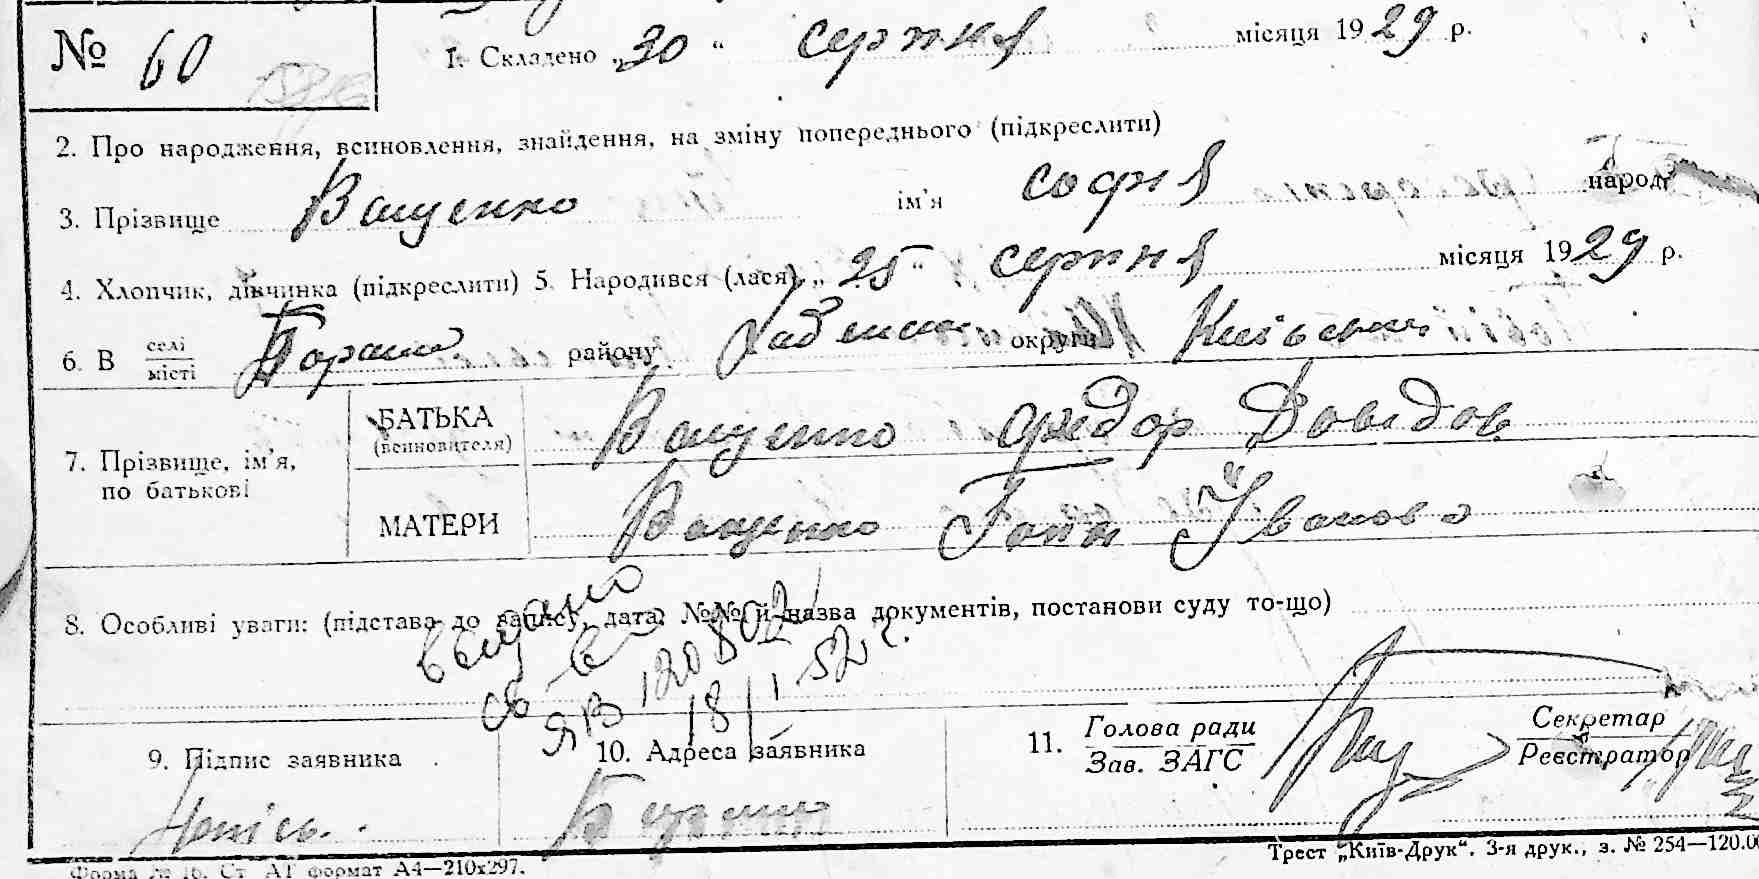 № 60
1. Складено „30“ серпня місяця 1929 р.
2. Про народження, всиновлення, знайдення, на зміну попереднього (підкреслити)
3. Прізвище Ващенко ім'я София народ.
4. Хлопчик, дівчинка (підкреслити) 5. Народився (лася) „25“ серпня місяця 1929 р.
6. В селі місті району округи Київськи
7. Прізвище, ім'я, по батькові
БАТЬКА (всиновителя) Ващенко Федор Довідов
МАТЕРИ Ващенко Ганн Іванова
8. Особливі уваги: (підстава до запису, дата, №№ й назва документів, постанови суду то-що)
выдано
св-во
ЯВ 120802
18/I 52 г.
9. Підпис заявника
10. Адреса заявника
11. Голова ради
Зав. ЗАГС
Секретар
Реєстратор
Трест „Київ-Друк“. 3-я друк., з. № 254—120.00
Форма № 16. Ст. АТ формат А4—210х297.